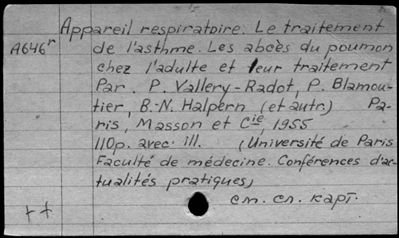 Appareil respiratoire. Le traitement
A646ʳ de l'asthme. Les abcès du poumon
chez l'adulte et leur traitement
Par. P. Vallery-Radot, P. Blamou-
tier, B.-N. Halpern (et autr.) Pa-
ris, Masson et Cie, 1955
110p. avec. ill. (Université de Paris
Faculté de médecine. Conférences d'ac-
tualités pratiques)
см. сл. карт.
++